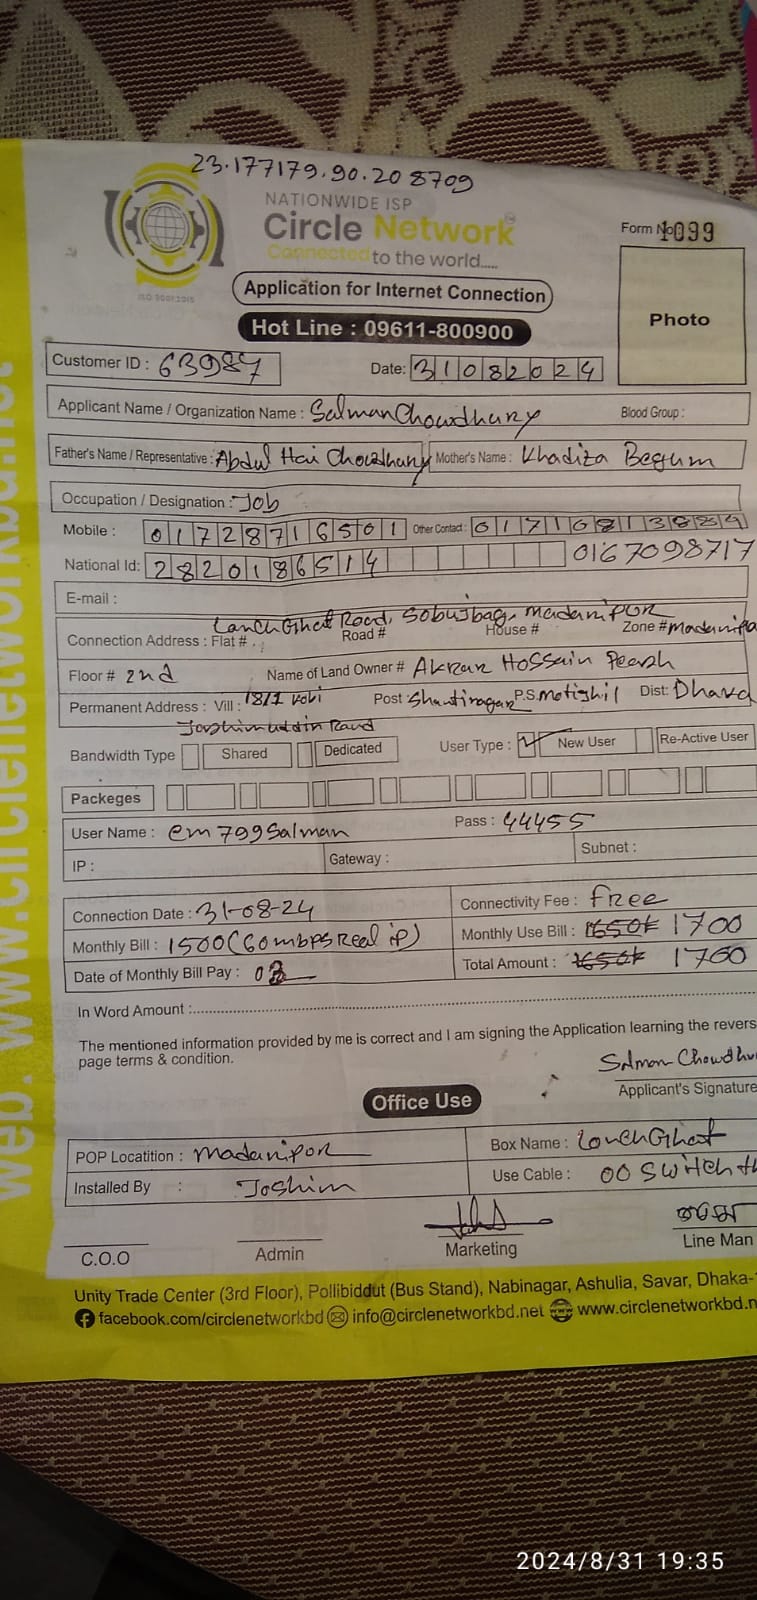 23.177179.90.20 8709
NATIONWIDE ISP
Circle Network
Connected to the world.....
ISO 9001:2015
Form No 1099
Application for Internet Connection
Hot Line : 09611-800900
Photo
Customer ID : 63987
Date: 31082024
Applicant Name / Organization Name : Salman Chowdhury Blood Group :
Father's Name / Representative : Abdul Hai Chowdhury Mother's Name : Khadiza Begum
Occupation / Designation : Job
Mobile : 01728716501 Other Contact :
National Id: 2820186514 0167098717
E-mail :
Lanch Ghat Road, Sobujbag, Madaripor
Connection Address : Flat # Road # House # Zone # madaripa
Floor # 2nd Name of Land Owner # Hossain
Permanent Address : Vill : 18/1 Post : Shantinagar P.S. Motighil Dist: Dhaka
Bandwidth Type Shared Dedicated User Type : New User Re-Active User
Packeges
User Name : em799salman Pass : 44455
IP : Gateway : Subnet :
Connection Date : 31-08-24 Connectivity Fee : Free
Monthly Bill : 1500 (60mbps Real iP) Monthly Use Bill : 1700
Date of Monthly Bill Pay : Total Amount : 1700
In Word Amount :
The mentioned information provided by me is correct and I am signing the Application learning the revers
page terms & condition.
Salman Chowdhu
Applicant's Signature
Office Use
POP Locatition : Madaripor Box Name : LonchGhat
Installed By : Joshim Use Cable : 00 switch
C.O.O Admin Marketing Line Man
Unity Trade Center (3rd Floor), Pollibiddut (Bus Stand), Nabinagar, Ashulia, Savar, Dhaka-
facebook.com/circlenetworkbd info@circlenetworkbd.net www.circlenetworkbd.n
web: www.circlenetworkbd.net
2024/8/31 19:35